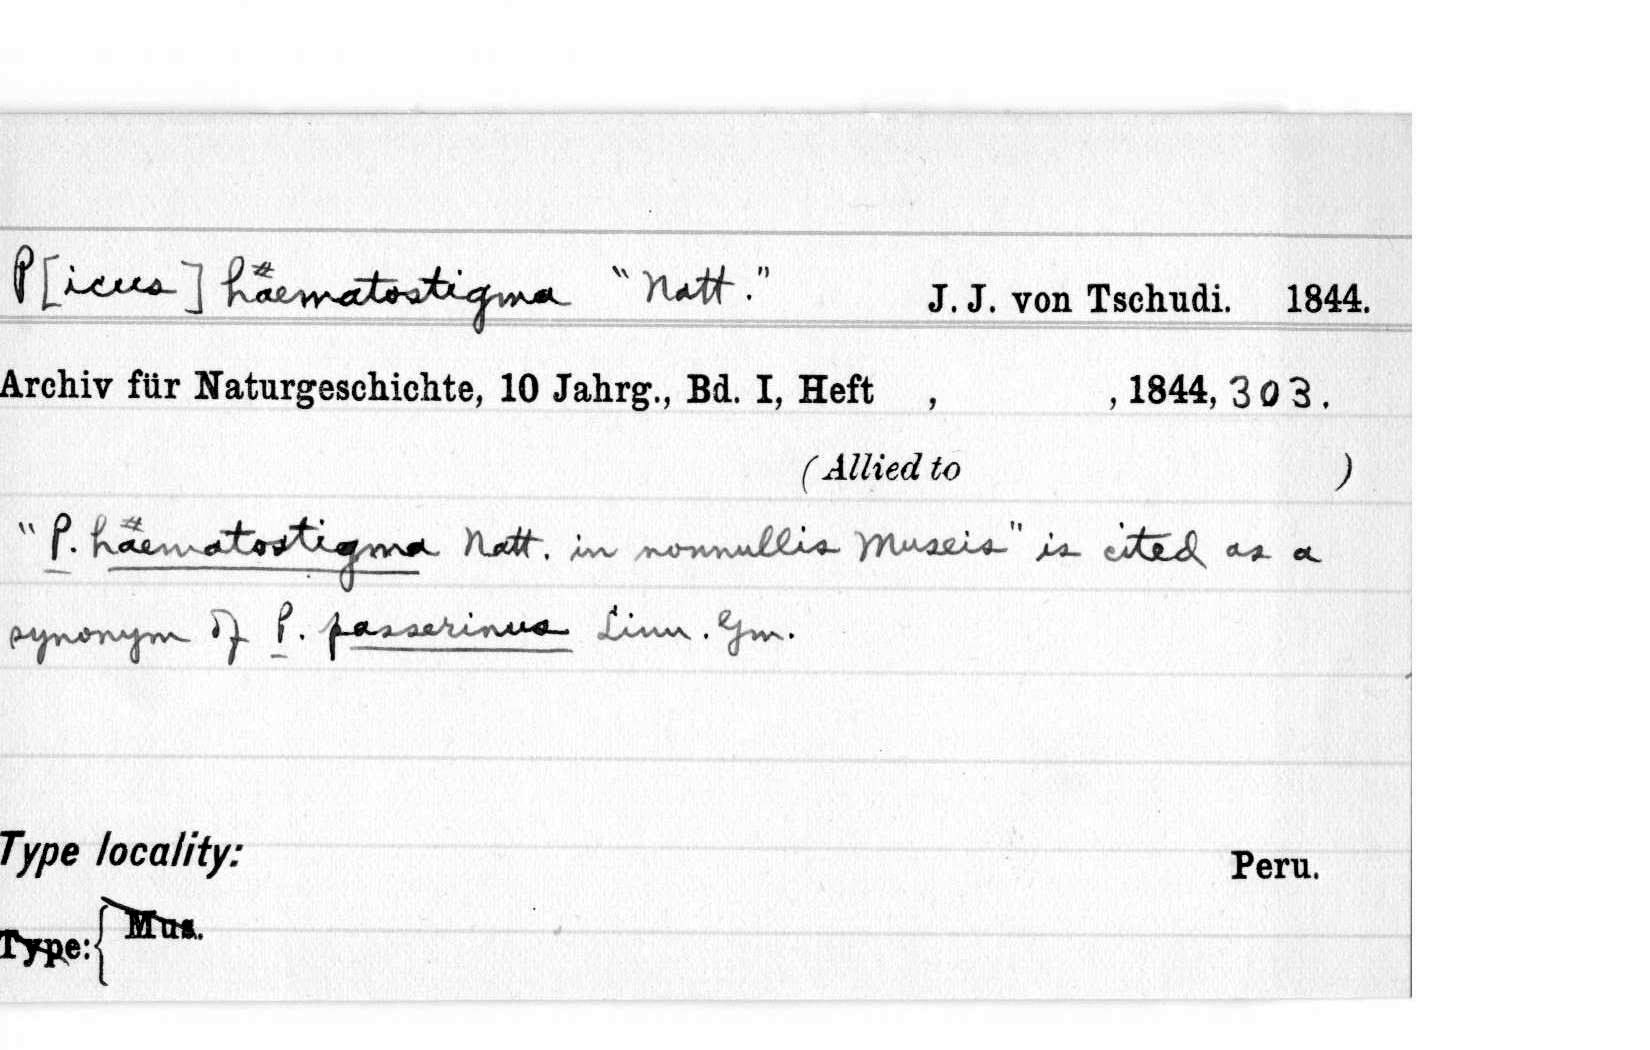 P[icus] häematostigma "Natt." J. J. von Tschudi. 1844.
Archiv für Naturgeschichte, 10 Jahrg., Bd. I, Heft , , 1844, 303.
(Allied to )
"P. häematostigma Natt. in nonnullis Museis" is cited as a
synonym of P. passerinus Linn. Gm.
Type locality: Peru.
Type: { Mus.